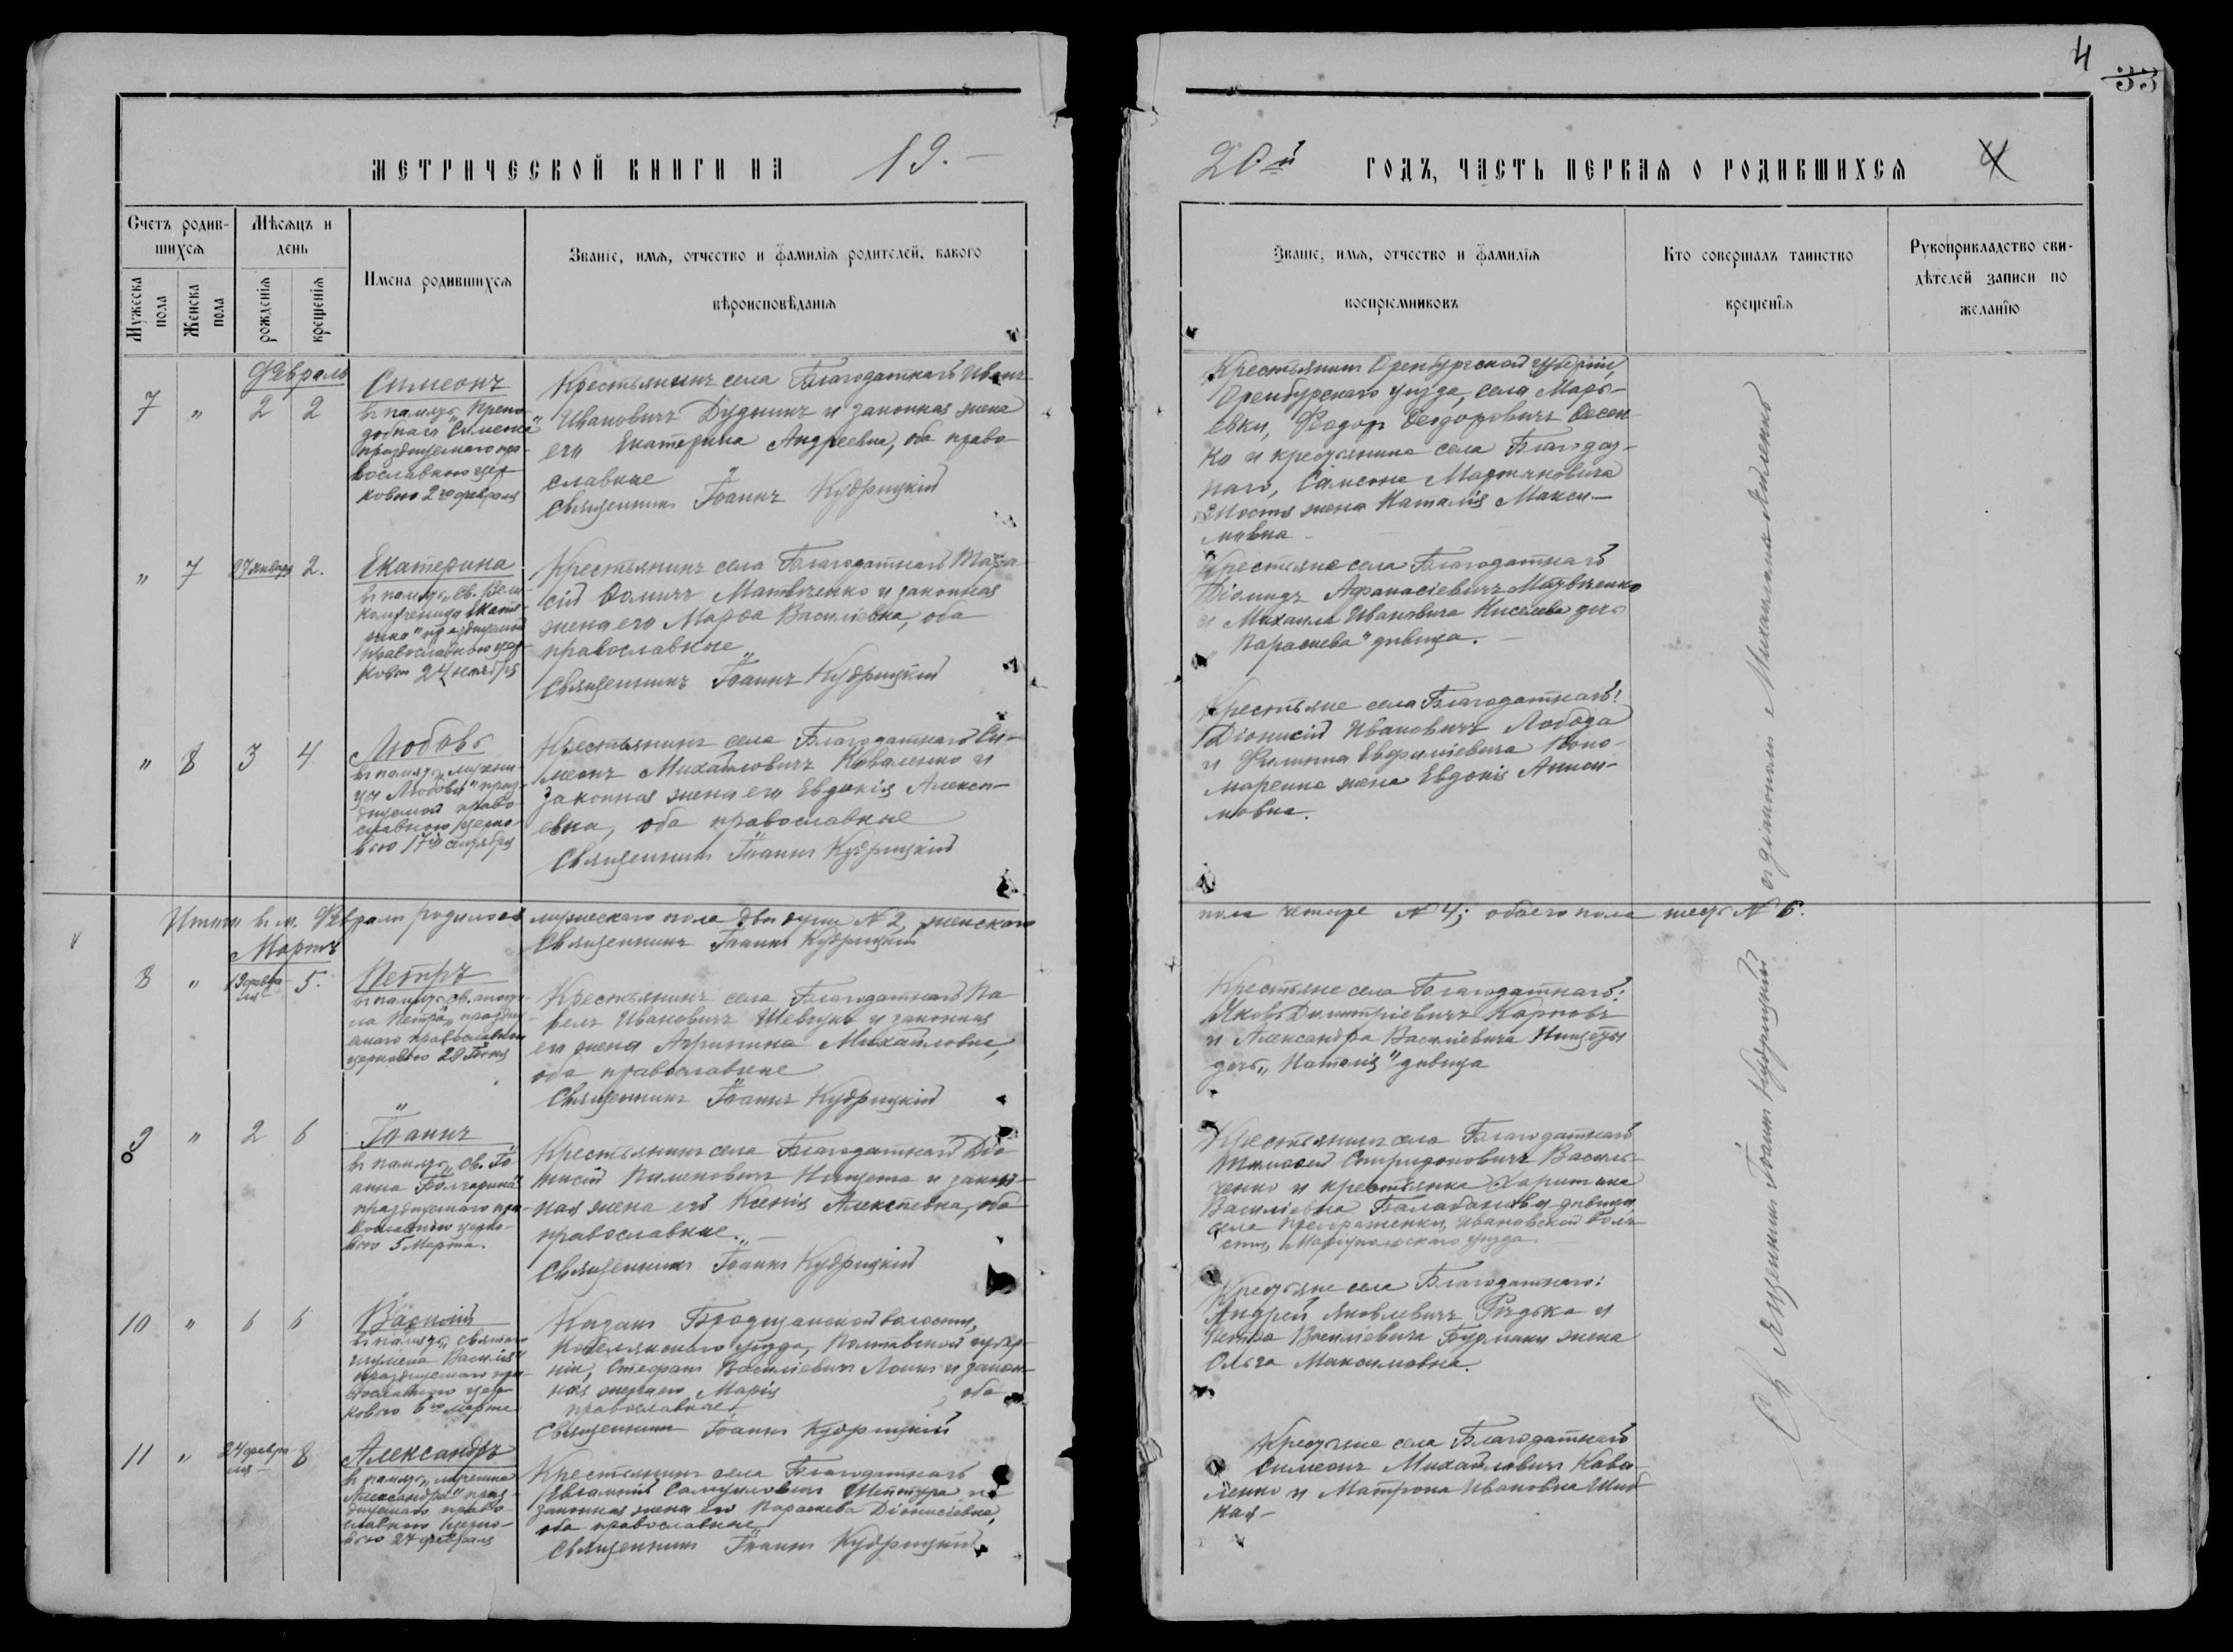 4
33
МЕТРИЧЕСКОЙ КНИГИ НА 19.-
20й ГОДЪ, ЧАСТЬ ПЕРВАЯ О РОДИВШИХСЯ 4
Счетъ родив-
шихся
Мужеска пола
Женска пола
Мѣсяцъ и
день
рожденія
крещенія
Имена родившихся
Званіе, имя, отчество и фамилія родителей, какого
вѣроисповѣданія
Званіе, имя, отчество и фамилія
воспріемниковъ
Кто совершалъ таинство
крещенія
Рукоприкладство сви-
дѣтелей записи по
желанію
Февраль
7 " 2 2
Симеонъ
въ память Препо-
добнаго "Симеона"
празднуемаго пра-
вославною цер-
ковью 2го февраля
Крестьянинъ села Благодатнаго Иванъ
Ивановичъ Дудкинъ и законная жена
его Екатерина Андреевна, оба право-
славные
Священникъ Іоаннъ Кудрицкій
Крестьянинъ Оренбургской губерніи,
Оренбургскаго уѣзда, села Марь-
евки, Феодоръ Феодоровичъ
ко и крестьянина села Благодат-
наго, Самсона Мартиновича
жена Наталія Макси-
мовна -
" 7 27 января 2.
Екатерина
въ память "св. Вели-
комученицы Екате-
рины" празднуемой
православною цер-
ковью 24 ноября
Крестьянинъ села Благодатнаго Тара-
сій Фомичъ Матвѣенко и законная
жена его Марфа Василіевна, оба
православные
Священникъ Іоаннъ Кудрицкій
Крестьяне села Благодатнаго
Діомидъ Афанасіевичъ Матвѣенко
и Михаила Ивановича Киселева дочь
Параскева" дѣвица. -
" 8 3 4
Любовь
въ память "мучени-
цы Любови" праз-
днуемой право-
славною церко-
вью 17го сентября
Крестьянинъ села Благодатнаго Си-
меонъ Михайловичъ Коваленко и
законная жена его Евдокія Алексі-
евна, оба православные
Священникъ Іоаннъ Кудрицкій
Крестьяне села Благодатнаго:
Діонисій Ивановичъ Лобода
и Филиппа Евфиміевича Поно-
маренка жена Евдокія Аниси-
мовна.
Итого въ м. Февралѣ родилось мужескаго пола двѣ души №2, женскаго
пола четыре №4; обоего пола шесть №6.
Священникъ Іоаннъ Кудрицкій
Мартъ
8 " 19 февра-
ля 5.
Петръ
въ память св. апосто-
ла Петра" праздну-
емаго православною
церковью 29 Іюня
Крестьянинъ села Благодатнаго Па-
велъ Ивановичъ Шевчукъ и законная
его жена Агрипина Михайловна,
оба православные
Священникъ Іоаннъ Кудрицкій
Крестьяне села Благодатнаго:
Яковъ Димитріевичъ Карповъ
и Александра Василіевича Нищеты
дочь "Наталія" дѣвица
9 " 2 6
Іоаннъ
въ память "св. Іо-
анна Болгарина"
празднуемаго пра-
вославною церко-
вью 5 Марта.
Крестьянинъ села Благодатнаго Діо-
нисій Пименовичъ Нищета и закон-
ная жена его Ксенія Алексѣевна, оба
православные. -
Священникъ Іоаннъ Кудрицкій
Крестьянинъ села Благодатнаго
Тимофей Спиридоновичъ Василь-
ченко и крестьянка Харитина
Василіевна дѣвица
села Преображенки, Ивановской воло-
сти, Маріупольскаго уѣзда. -
10 " 6 6
Василій
въ память "святаго
мученика Василія"
празднуемаго пра-
вославною цер-
ковью 6го марта
Казакъ волости,
Кобелякскаго уѣзда, Полтавской губер-
ніи, Стефанъ Василіевичъ и закон-
ная жена его Марія оба
православные
Священникъ Іоаннъ Кудрицкій
Крестьяне села Благодатнаго:
Андрей Яковлевичъ Рѣдька и
Петра Василіевича Бурмаки жена
Ольга Максимовна.
11 " 24 февра-
ля 8
Александръ
въ память "мученика
Александра" праз-
днуемаго право-
славною церко-
вью 27 февраля
Крестьянинъ села Благодатнаго
Евлампій Самуиловичъ и
законная жена его Параскева Діонисіевна,
оба православные
Священникъ Іоаннъ Кудрицкій
Крестьяне села Благодатнаго
Симеонъ Михайловичъ Кова-
ленко и Матрона Ивановна
кая -
Священникъ Іоаннъ Кудрицкій